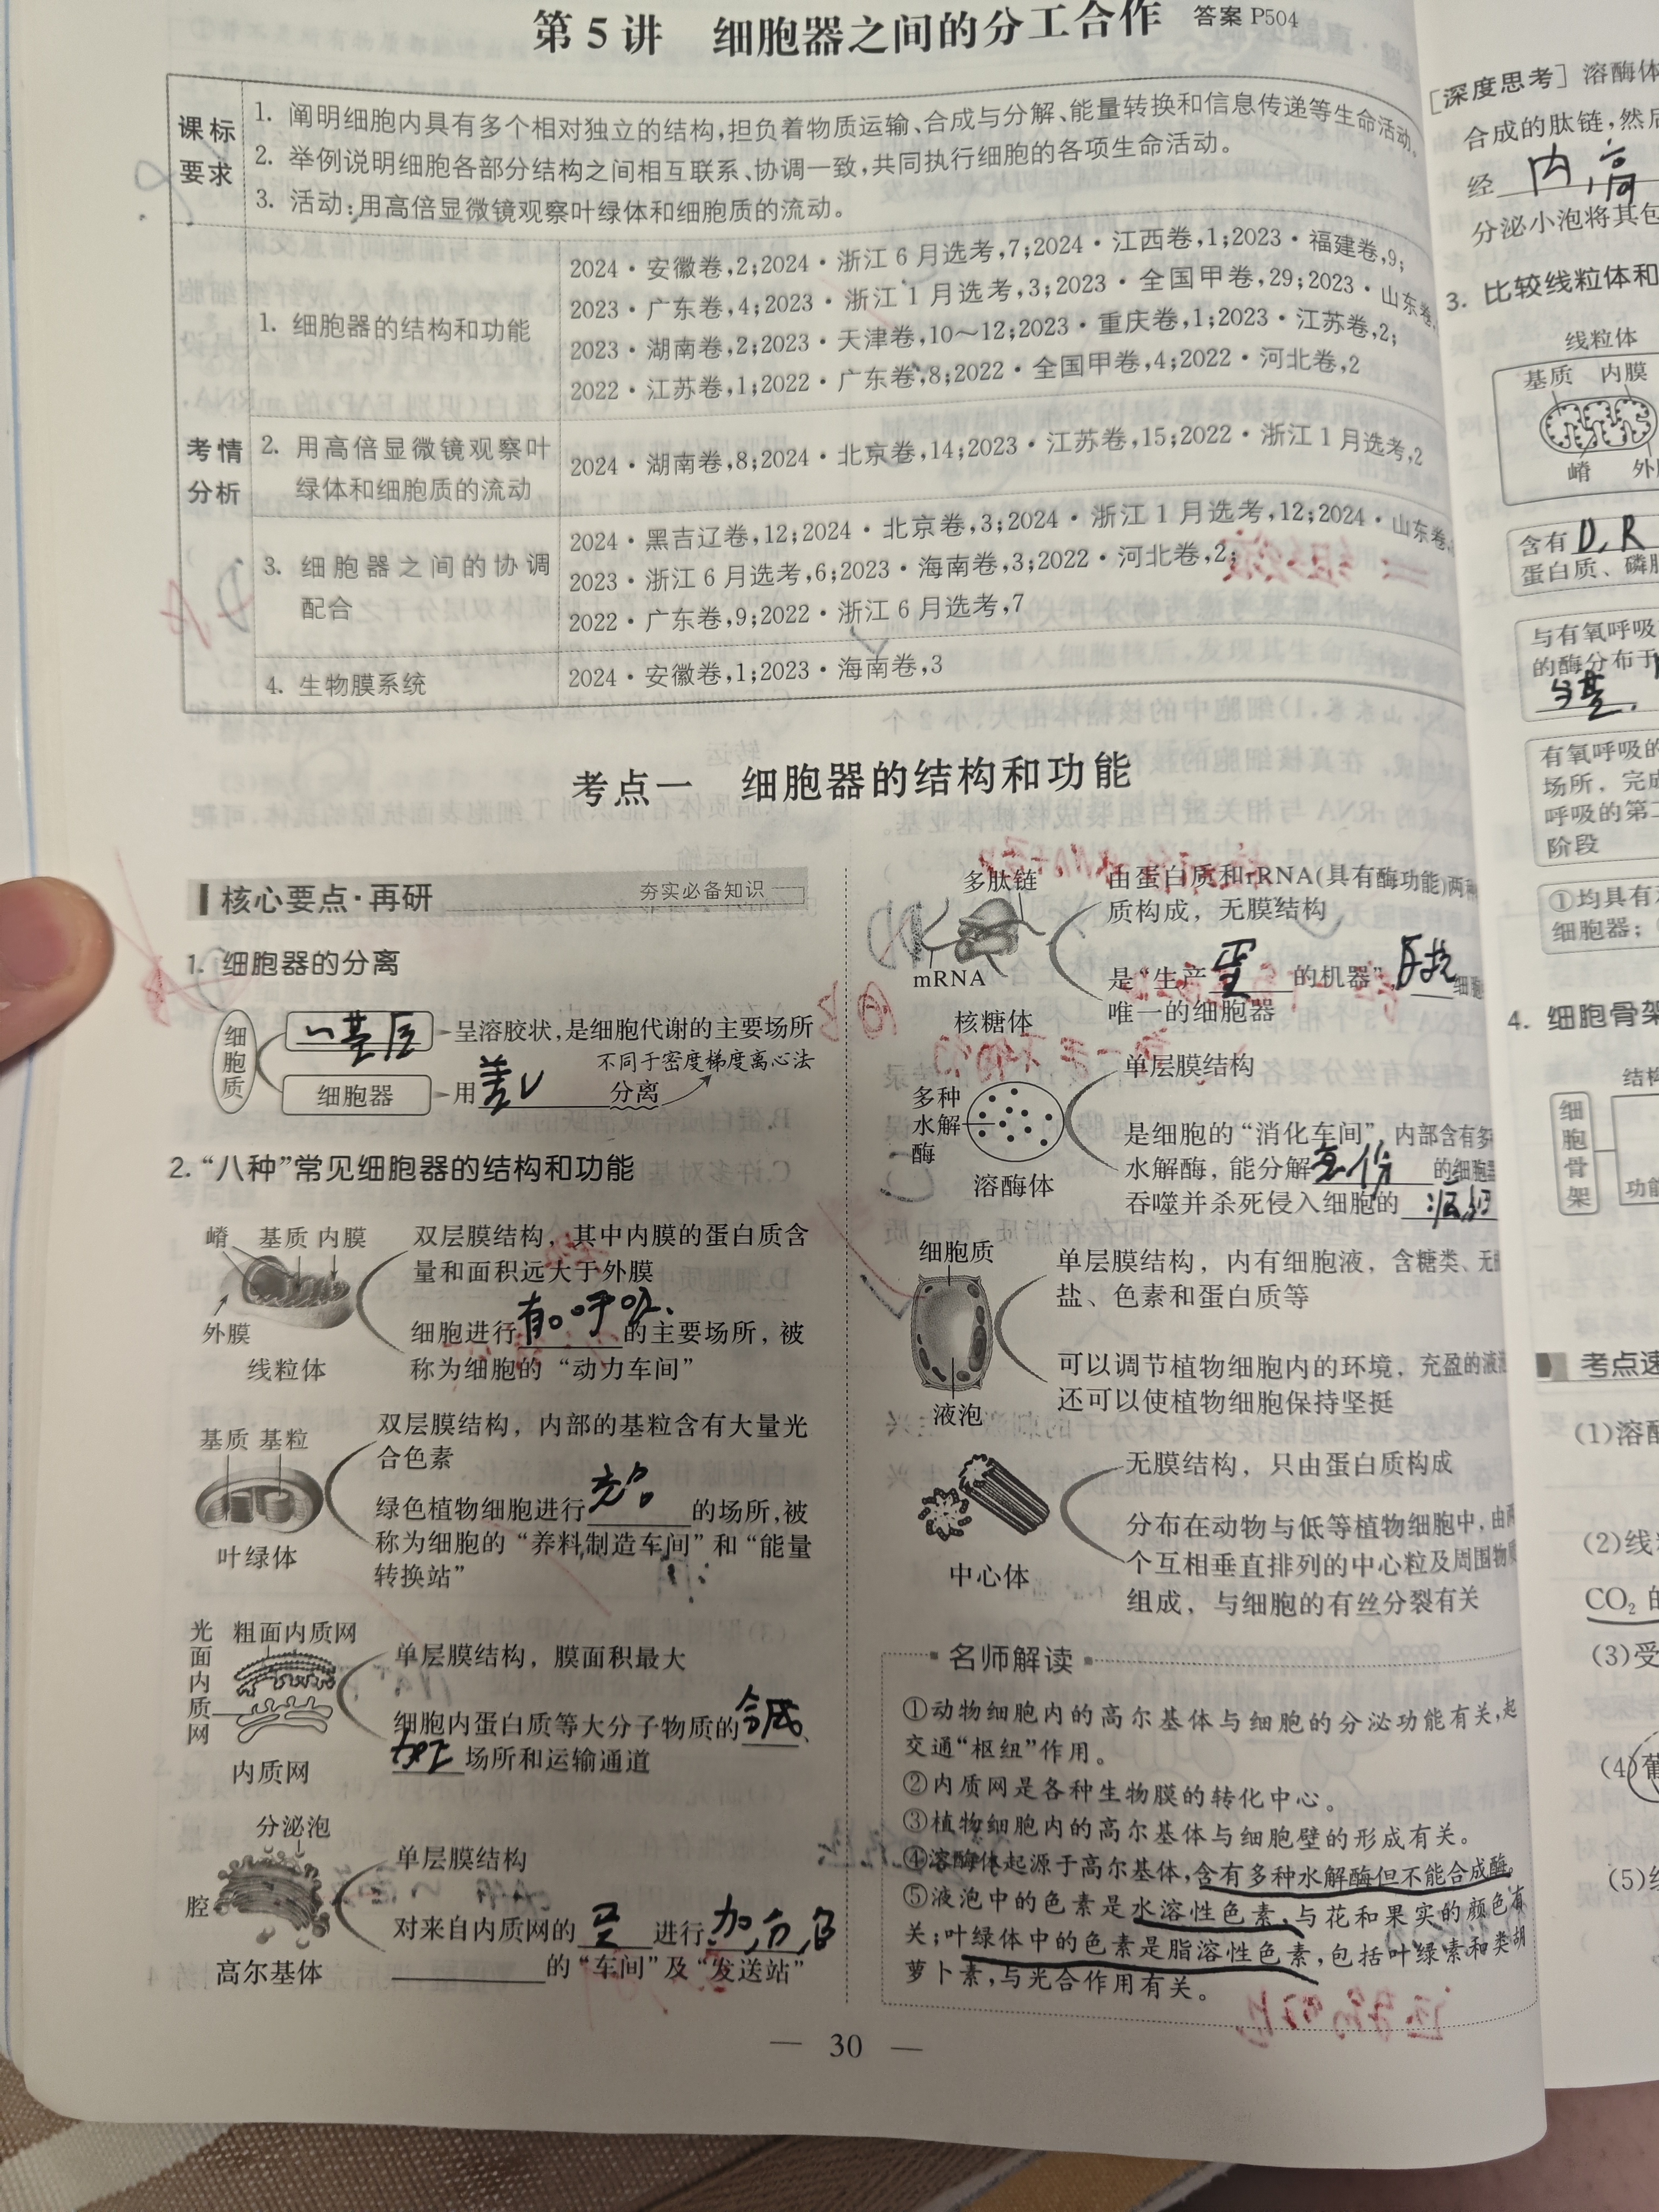 第5讲 细胞器之间的分工合作 答案 P504
课标要求
1. 阐明细胞内具有多个相对独立的结构,担负着物质运输、合成与分解、能量转换和信息传递等生命活动。
2. 举例说明细胞各部分结构之间相互联系、协调一致,共同执行细胞的各项生命活动。
3. 活动:用高倍显微镜观察叶绿体和细胞质的流动。
考情分析
1. 细胞器的结构和功能
2024·安徽卷,2;2024·浙江6月选考,7;2024·江西卷,1;2023·福建卷,9;
2023·广东卷,4;2023·浙江1月选考,3;2023·全国甲卷,29;2023·山东卷,
2023·湖南卷,2;2023·天津卷,10~12;2023·重庆卷,1;2023·江苏卷,2;
2022·江苏卷,1;2022·广东卷,8;2022·全国甲卷,4;2022·河北卷,2
2. 用高倍显微镜观察叶
绿体和细胞质的流动
2024·湖南卷,8;2024·北京卷,14;2023·江苏卷,15;2022·浙江1月选考,2
3. 细胞器之间的协调
配合
2024·黑吉辽卷,12;2024·北京卷,3;2024·浙江1月选考,12;2024·山东卷,
2023·浙江6月选考,6;2023·海南卷,3;2022·河北卷,2;
2022·广东卷,9;2022·浙江6月选考,7
4. 生物膜系统
2024·安徽卷,1;2023·海南卷,3
考点一 细胞器的结构和功能
核心要点·再研 夯实必备知识
1. 细胞器的分离
细胞质
呈溶胶状,是细胞代谢的主要场所
不同于密度梯度离心法
细胞器 用 差 分离
2. “八种”常见细胞器的结构和功能
嵴 基质 内膜
外膜
线粒体
双层膜结构,其中内膜的蛋白质含
量和面积远大于外膜
细胞进行 有o呼吸 的主要场所,被
称为细胞的“动力车间”
基质 基粒
叶绿体
双层膜结构,内部的基粒含有大量光
合色素
绿色植物细胞进行 的场所,被
称为细胞的“养料制造车间”和“能量
转换站”
光面内质网
粗面内质网
内质网
单层膜结构,膜面积最大
细胞内蛋白质等大分子物质的 合成、
加工 场所和运输通道
分泌泡
腔
高尔基体
单层膜结构
对来自内质网的 进行 加,分,包
的“车间”及“发送站”
多肽链
mRNA
核糖体
由蛋白质和rRNA(具有酶功能)两种
质构成,无膜结构
是“生产 蛋 的机器”, 细胞
唯一的细胞器
多种
水解
酶
溶酶体
单层膜结构
是细胞的“消化车间”,内部含有多
水解酶,能分解 的细胞器
吞噬并杀死侵入细胞的
细胞质
液泡
单层膜结构,内有细胞液,含糖类、无
盐、色素和蛋白质等
可以调节植物细胞内的环境,充盈的液
还可以使植物细胞保持坚挺
中心体
无膜结构,只由蛋白质构成
分布在动物与低等植物细胞中,由两
个互相垂直排列的中心粒及周围物
组成,与细胞的有丝分裂有关
名师解读
①动物细胞内的高尔基体与细胞的分泌功能有关,起
交通“枢纽”作用。
②内质网是各种生物膜的转化中心。
③植物细胞内的高尔基体与细胞壁的形成有关。
④溶酶体起源于高尔基体,含有多种水解酶但不能合成酶。
⑤液泡中的色素是水溶性色素,与花和果实的颜色有
关;叶绿体中的色素是脂溶性色素,包括叶绿素和类胡
萝卜素,与光合作用有关。
— 30 —
[深度思考] 溶酶体
合成的肽链,然后
经 内,高
分泌小泡将其包
3. 比较线粒体和
线粒体
基质 内膜
嵴 外
含有 D,R
蛋白质、磷脂
与有氧呼吸
的酶分布于
有氧呼吸的
场所,完成
呼吸的第二
阶段
①均具有
细胞器;
4. 细胞骨架
细胞骨架
结构
功能
考点速
(1)溶酶
(2)线
CO₂ 的
(3)受
(4)葡
(5)